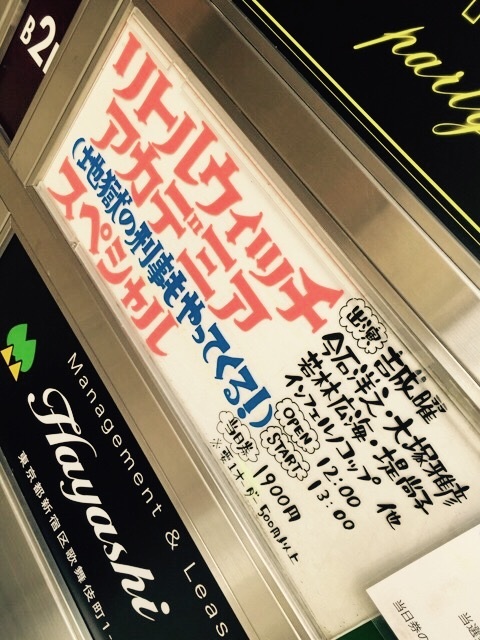 B2
party
リトルウィッチ
アカデミア
(地獄の刑事もやってくる!)
スペシャル
出演:吉成曜
今石洋之・大塚雅彦
若林広海・堤尚子
インフェルノコップ 他
OPEN 12:00
START 13:00
当日券 1900円
※要1オーダー500円以上
Management & Leas
Hayashi
東京都新宿区歌舞伎町1-
当選
当日券